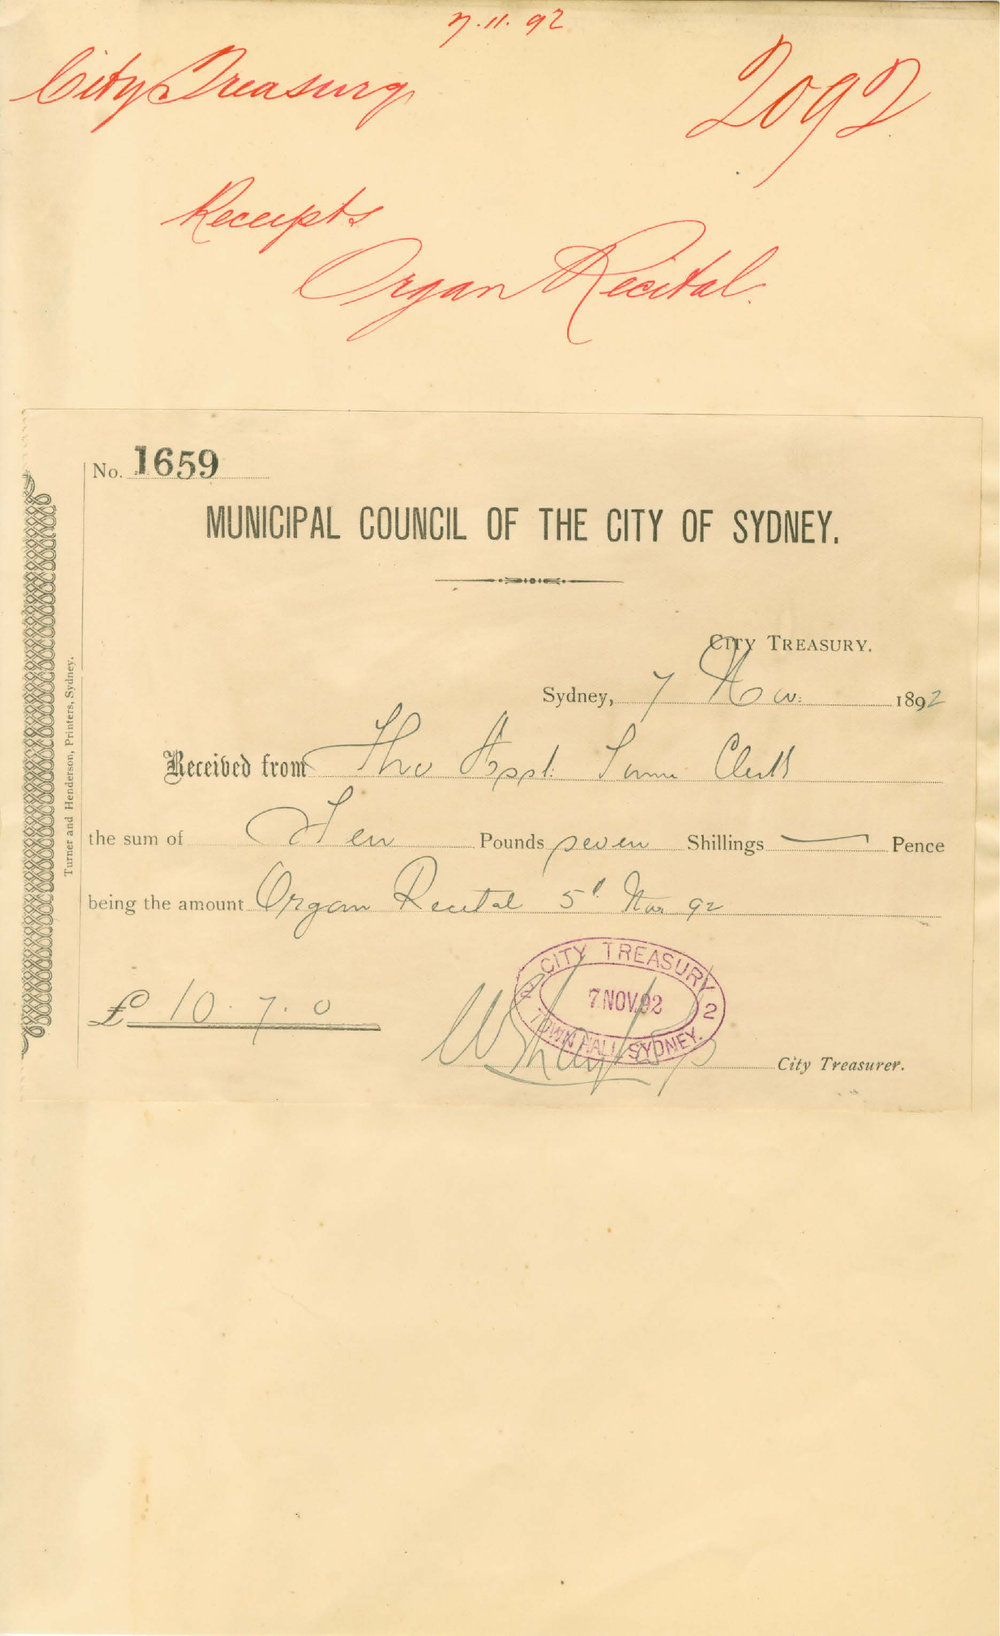 7.11.92
City Treasury
2092
Receipts
Organ Recital.
No. 1659
MUNICIPAL COUNCIL OF THE CITY OF SYDNEY.
CITY TREASURY.
Sydney, 7 Nov: 1892
Received from The Asst. Town Clerk
the sum of Ten Pounds seven Shillings — Pence
being the amount Organ Recital 5th Nov 92
£10.7.0
CITY TREASURY
2 7 NOV. 92 2
TOWN HALL SYDNEY.
City Treasurer.
Turner and Henderson, Printers, Sydney.